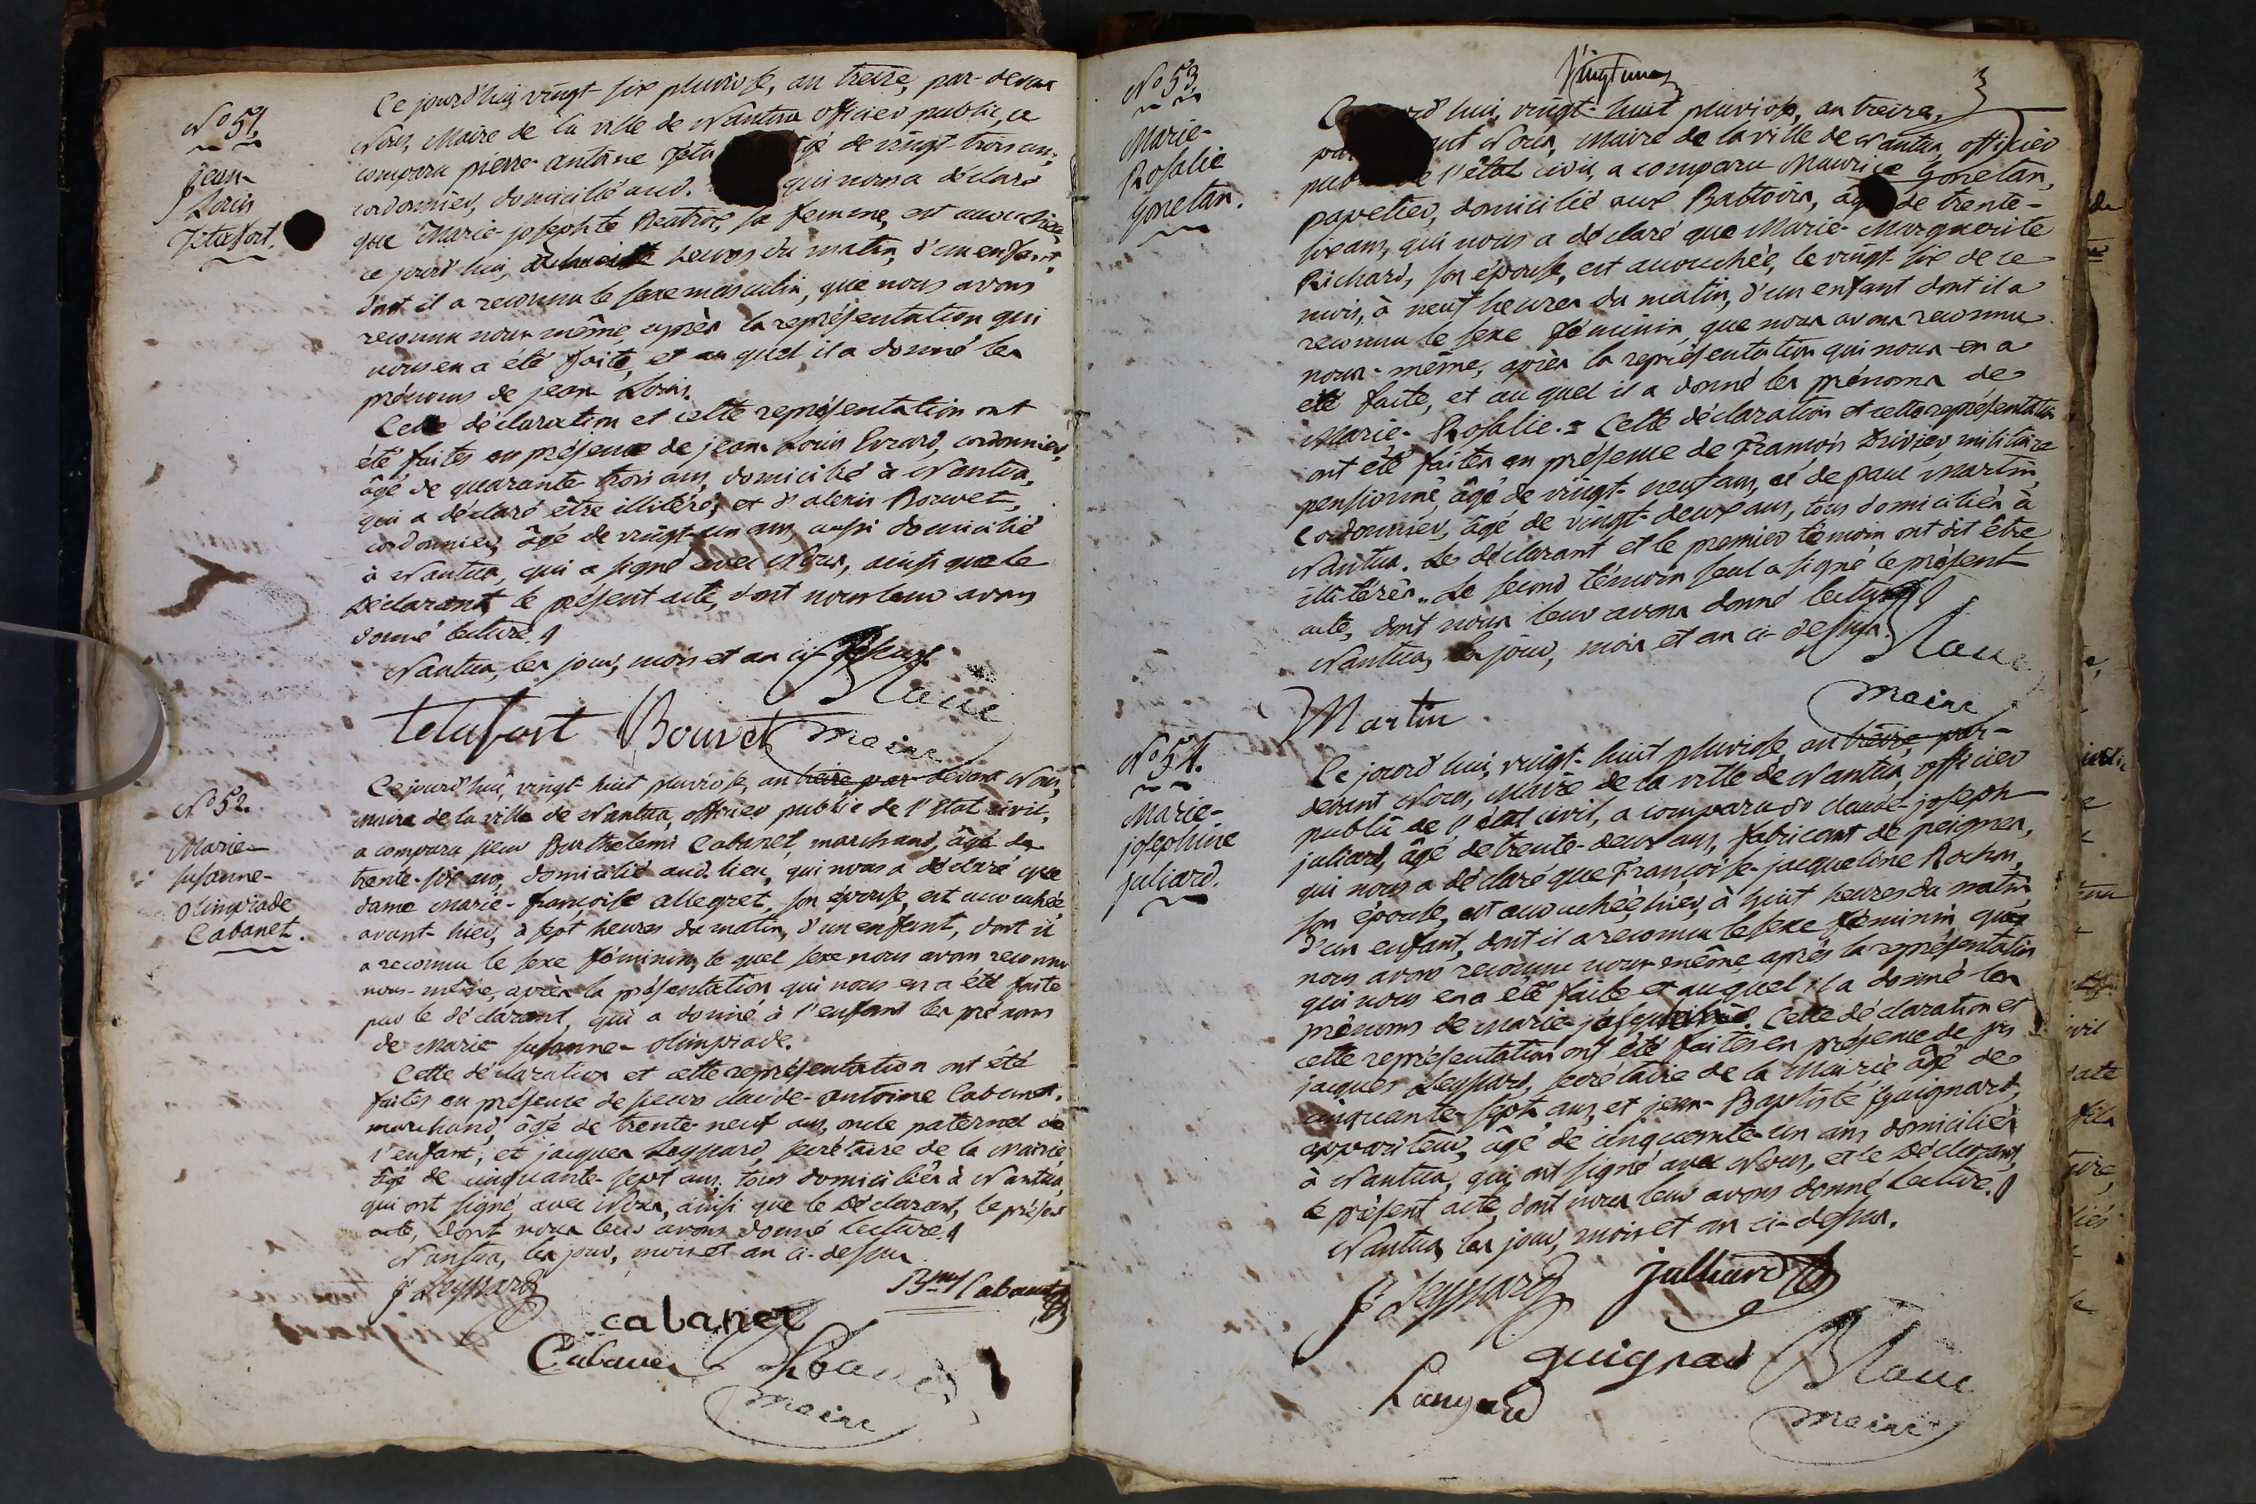 N° 51.
Jean-
Louis
Tétafort.
Ce jourd'hui vingt-six pluviose, an treize, par-devant
Nous, Maire de la ville de Nantua officier public, a
comparu pierre-antoine Téta de vingt trois ans,
cordonnier, domicilié aud. qui nous a déclaré
que Marie-josephte Beatrix, sa femme, est accouchée
ce jourd'hui, à huit heures du matin, d'un enfant,
dont il a reconnu le sexe masculin, que nous avons
reconnu nous même, après la représentation qui
nous en a été faite, et au quel il a donné les
prénoms de jean Louis.
Cette déclaration et cette représentation ont
été faites en présence de jean-Louis Evrard, cordonnier,
âgé de quarante trois ans, domicilié à Nantua,
qui a déclaré être illitéré; et d'alexis Bouvet,
cordonnier, âgé de vingt-un ans, aussi domicilié
à Nantua, qui a signé avec Nous, ainsi que le
Déclarant le présent acte, dont nous leur avons
donné lecture.
Nantua, les jour, mois et an ci-dessus.
tetafort Bouvet
maire
N° 52.
Marie-
susanne-
Olimpiade
Cabanet.
Ce jourd'hui, vingt-huit pluviose, an treize par-devant Nous,
maire de la ville de Nantua, officier public de l'état civil,
a comparu sieur Barthelemi Cabanet, marchand, âgé de
trente-six ans, domicilié aud. lieu, qui nous a déclaré que
dame Marie-françoise allegret, son épouse, est accouchée
avant-hier, à sept heures du matin, d'un enfant, dont il
a reconnu le sexe féminin, le quel sexe nous avons reconnu
nous-même, après la présentation qui nous en a été faite
par le déclarant, qui a donné à l'enfant les prénoms
de Marie susanne-olimpiade.
Cette déclaration et cette représentation ont été
faites en présence de sieurs claude-antoine Cabanet,
marchand, âgé de trente-neuf ans, oncle paternel de
l'enfant, et jacques Leyssard, secrétaire de la Mairie
âgé de cinquante-sept ans, tous domiciliés à Nantua,
qui ont signé, avec Nous, ainsi que le Déclarant, le présent
acte, dont nous leur avons donné lecture.
Nantua, les jour, mois et an ci-dessus
J. Leyssard
Bmy Cabanet
cabanet
Cabanet
maire
Vingt une
N° 53.
Marie-
Rosalie
Gonetan.
hui, vingt-huit pluviose, an treize,
Nous, Maire de la ville de Nantua, officier
l'état civil, a comparu Maurice Gonetan,
papetier, domicilié aux Battoirs, âgé de trente-
six ans, qui nous a déclaré que Marie-Marguerite
Richard, son épouse, est accouchée, le vingt six de ce
mois, à neuf heures du matin, d'un enfant dont il a
reconnu le sexe féminin, que nous avons reconnu
nous-même, après la représentation qui nous en a
été faite, et au quel il a donné les prénoms de
Marie-Rosalie. = Cette déclaration et cette représentation
ont été faites en présence de François Drivier, militaire
pensionné, âgé de vingt-neuf ans, et de paul Martin,
Cordonnier, âgé de vingt-deux ans, tous domiciliés à
Nantua. Le déclarant et le premier témoin ont dit être
illitérés. Le second témoin seul a signé le présent
acte, dont nous leur avons donné lecture.
Nantua, les jour, mois et an ci-dessus.
Martin
maire
N° 54.
Marie-
josephine
juliard.
Ce jourd'hui, vingt-huit pluviose, an treize, par-
devant Nous, Maire de la ville de Nantua, officier
public de l'état civil, a comparu claude-joseph
juliard, âgé de trente-deux ans, fabricant de peignes,
qui nous a déclaré que Françoise-jacqueline Rochon,
son épouse, est accouchée, hier, à huit heures du matin,
d'un enfant, dont il a reconnu le sexe féminin, que
nous avons reconnu nous même après la représentation
qui nous en a été faite et auquel il a donné les
prénoms de Marie Cette déclaration et
cette représentation ont été faites en présence de
jacques Leyssard, secrétaire de la Mairie âgé de
cinquante-sept ans, et jean-Baptiste Guignard,
appariteur, âgé de cinquante-un ans domiciliés
à Nantua, qui ont signé avec Nous, et le Déclarant,
le présent acte, dont nous leur avons donné lecture.
Nantua, les jour, mois et an ci-dessus.
J. Leyssard
julliard
guignard
maire